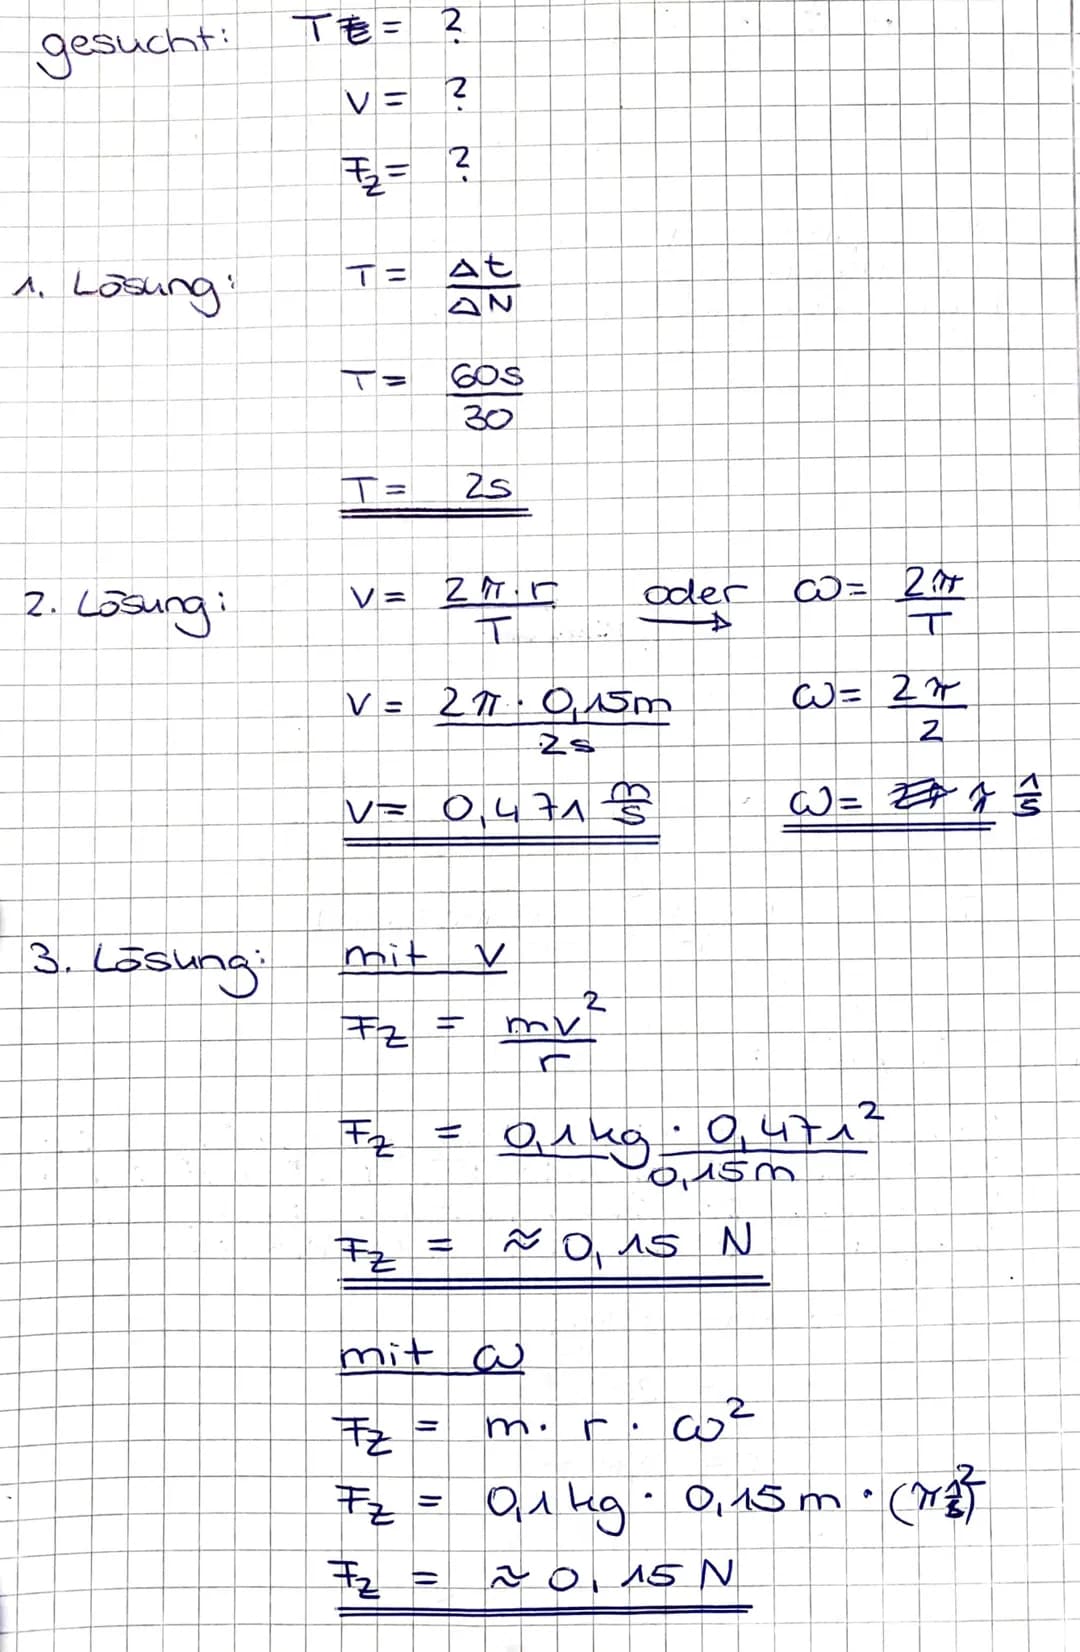 gesucht: T = ?
v = ?
Fz = ?
1. Lösung: T = Δt / ΔN
T = 60s / 30
T = 2s
2. Lösung: v = 2π · r / T oder → ω = 2π / T
v = 2π · 0,15m / 2s ω = 2π / 2
v = 0,471 m/s ω = π 1/s
3. Lösung: mit v
Fz = mv² / r
Fz = 0,1kg · 0,471² / 0,15m
Fz = ≈ 0,15 N
mit ω
Fz = m · r · ω²
Fz = 0,1kg · 0,15m · (π 1/s)²
Fz = ≈ 0,15 N